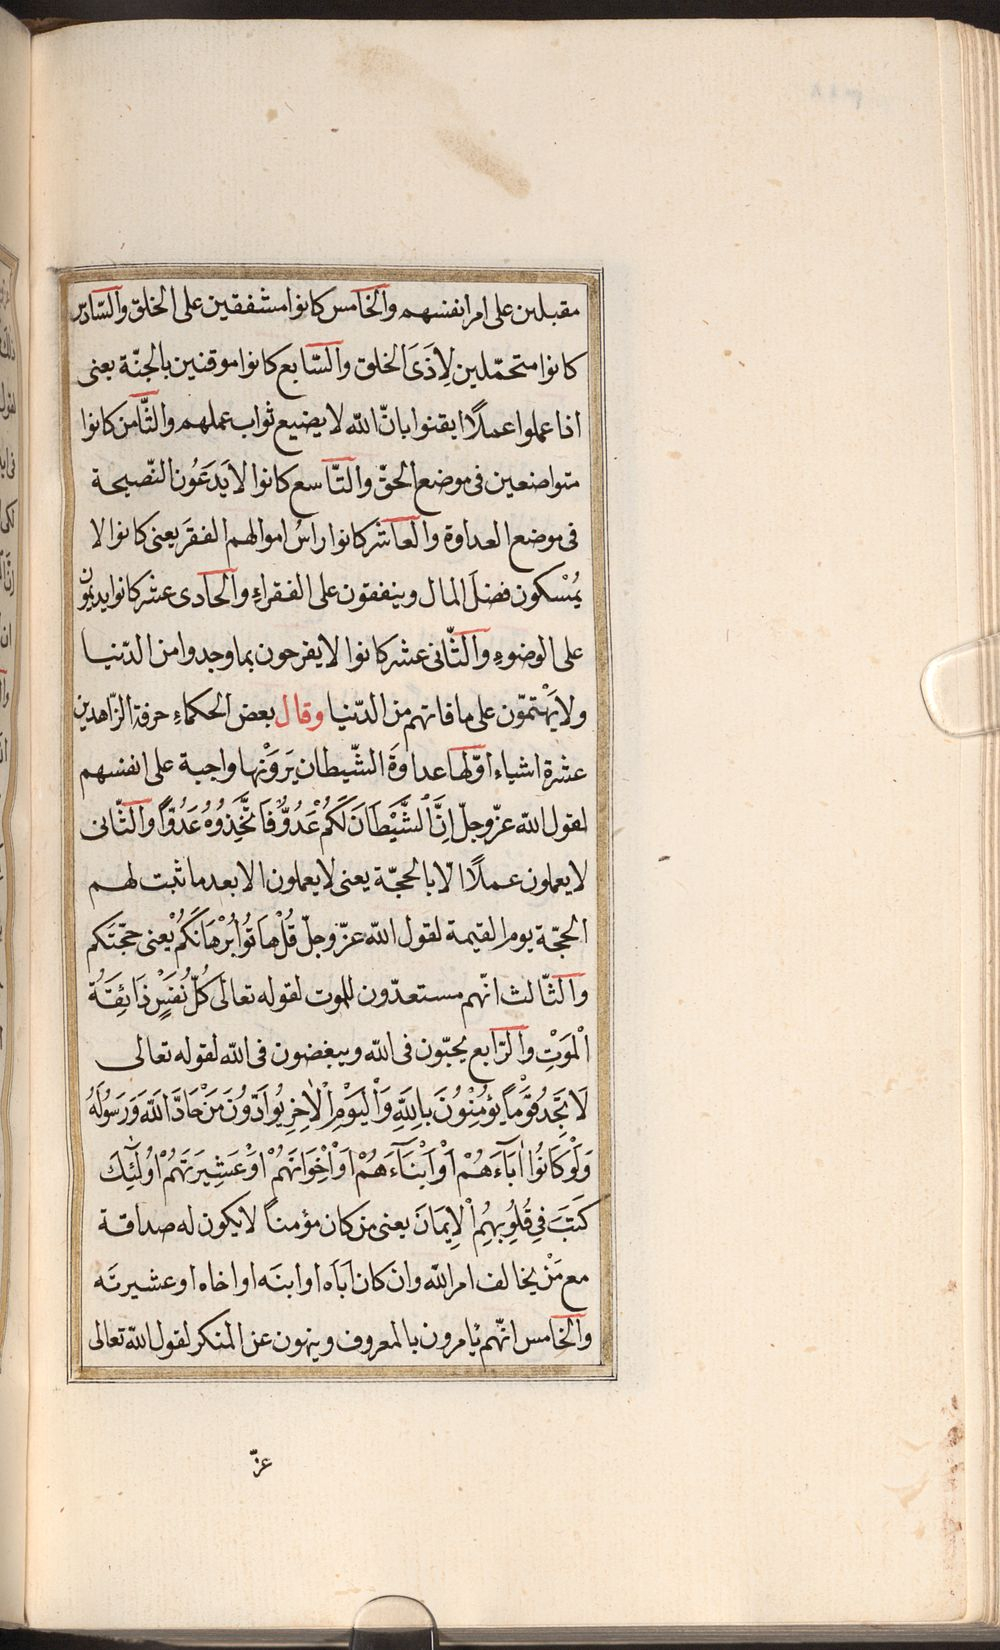 مقبلين على امر انفسهم والخامس كانوا مشفقين على الخلق والسّادس
كانوا متحمّلين لِاَذَى الخلق والسّابع كانوا موقنين بالجنّة يعنى
اذا عملوا عملًا ايقنوا بانّ الله لا يضيع ثواب عملهم والثّامن كانوا
متواضعين فى موضع الحقّ والتّاسع كانوا لا يَدَعُون النّصيحة
فى موضع العداوة والعاشر كانوا راسُ اموالهم الفقرَ يعنى كانوا لا
يُمْسكون فضلَ المال وينفقون على الفقراءِ والحادى عشر كانوا يديمون
على الوضوءِ والثّانى عشر كانوا لا يفرحون بما وجدوا من الدّنيا
ولا يَهْتمّون على ما فاتهم من الدّنيا وقال بعض الحكماءِ حرفة الزّاهدين
عشرة اشياء اوّلها عداوةَ الشّيطان يَرَوْنها واجبة على انفسهم
لقول الله عزّ وجلّ اِنَّ الشَّيْطَانَ لَكُمْ عَدُوٌّ فَاتَّخِذُوهُ عَدُوًّا والثّانى
لا يعملون عملًا الّا بالحجّة يعنى لا يعملون الا بعد ما ثبت لهم
الحجّة يوم القيمة لقول الله عزّ وجلّ قُلْ هَاتُوا بُرْهَانَكُمْ يعنى حجّتكم
والثّالث انّهم مستعدّون للموت لقوله تعالى كُلُّ نَفْسٍ ذَائِقَةُ
الْمَوْتِ والرّابع يحبّون فى الله ويبغضون فى الله لقوله تعالى
لَا تَجِدُ قَوْمًا يُؤْمِنُونَ بِاللَّهِ وَالْيَوْمِ الْاٰخِرِ يُوَادُّونَ مَنْ حَادَّ اللّٰهَ وَرَسُولَهُ
وَلَوْ كَانُوا اٰبَآءَهُمْ اَوْ اَبْنَآءَهُمْ اَوْ اِخْوَانَهُمْ اَوْ عَشِيرَتَهُمْ اُولٰٓئِكَ
كَتَبَ فِى قُلُوبِهِمُ الْاِيمَانَ يعنى من كان مؤمنًا لا يكون له صداقة
مع مَنْ يخالف امر الله وان كان اَبَاه او ابنَه او اخاه او عشيرتَه
والخامس انّهم يَامرون بالمعروف وينهون عن المنكر لقول الله تعالى
عزّ